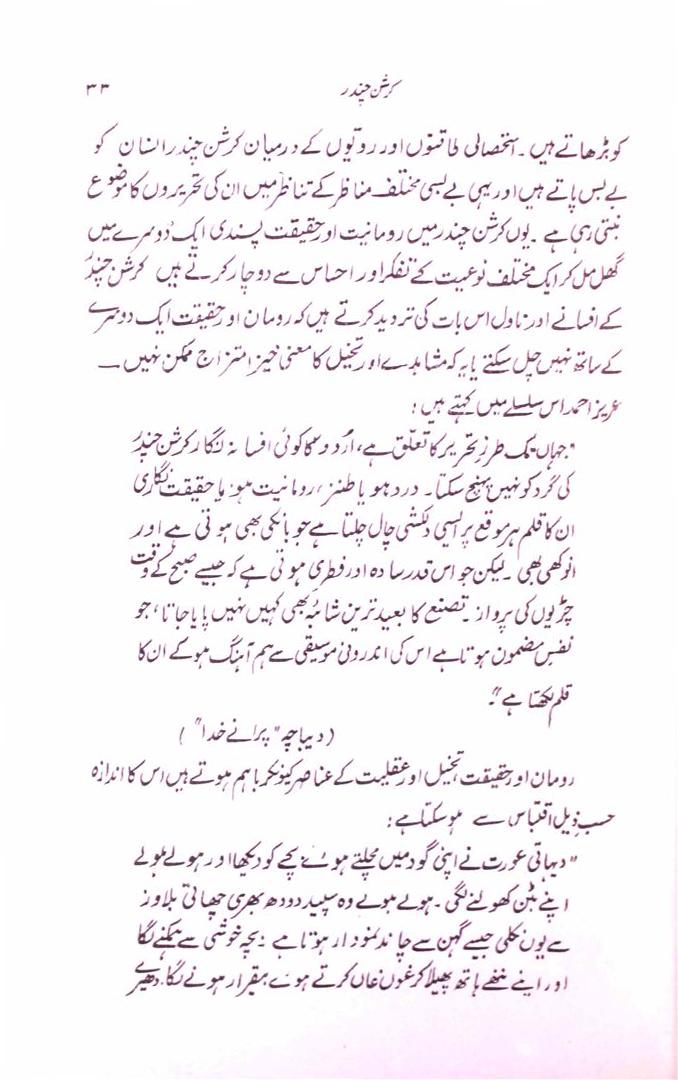 کرشن چندر ۳۳
کو بڑھاتے ہیں ۔ استحصالی طاقتوں اور رویّوں کے درمیان کرشن چندر انسان کو
بے بس پاتے ہیں اور یہی بے بسی مختلف مناظر کے تناظر میں ان کی تحریروں کا موضوع
بنتی رہی ہے ۔ یوں کرشن چندر میں رومانیت اور حقیقت پسندی ایک دوسرے میں
گھل مل کر ایک مختلف نوعیت کے تفکر اور احساس سے دوچار کرتے ہیں کرشن چندر
کے افسانے اور ناول اس بات کی تردید کرتے ہیں کہ رومان اور حقیقت ایک دوسرے
کے ساتھ نہیں چل سکتے یا یہ کہ مشاہدے اور تخیل کا معنی خیز امتزاج ممکن نہیں ــــ
عزیز احمد اس سلسلے میں کہتے ہیں :
"جہاں تک طرزِ تحریر کا تعلّق ہے، اُردو کا کوئی افسانہ نگار کرشن چندر
کی گرد کو نہیں پہنچ سکتا ۔ درد ہو یا طنز ، رومانیت ہو یا حقیقت نگاری
ان کا قلم ہر موقع پر ایسی دلکشی چال چلتا ہے جو بانکی بھی ہوتی ہے اور
انوکھی بھی ۔ لیکن جو اس قدر سادہ اور فطری ہوتی ہے کہ جیسے صبح کے وقت
چڑیوں کی پرواز ۔ تصنع کا بعید ترین شائبہ بھی کہیں نہیں پایا جاتا ، جو
نفسِ مضمون ہوتا ہے اس کی اندرونی موسیقی سے ہم آہنگ ہو کے ان کا
قلم لکھتا ہے" ۔
( دیباچہ "پرانے خدا" )
رومان اور حقیقت ، تخیل اور عقلیت کے عناصر کیونکر باہم ہوتے ہیں اس کا اندازہ
حسبِ ذیل اقتباس سے ہو سکتا ہے :
"دیہاتی عورت نے اپنی گود میں مچلتے ہوئے بچے کو دیکھا اور ہولے ہولے
اپنے بٹن کھولنے لگی ۔ ہولے ہولے وہ سپید دودھ بھری چھاتی بلاوز
سے یوں نکلی جیسے گہن سے چاند نمودار ہوتا ہے ۔ بچہ خوشی سے ہمکنے لگا
اور اپنے ننھے ہاتھ پھیلا کر غوں غاں کرتے ہوئے بیقرار ہونے لگا ۔ دھیرے